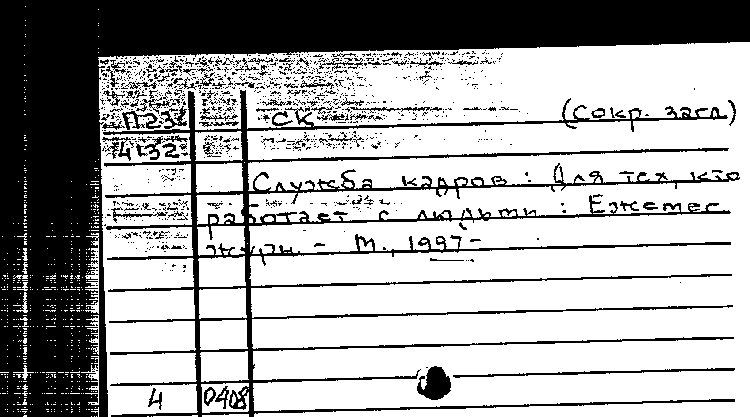 П23 СК (Сокр. загл)
4132
Служба кадров : Для тех, кто
работает с людьми : Ежемес.
журн. - М., 1997-
4 0408